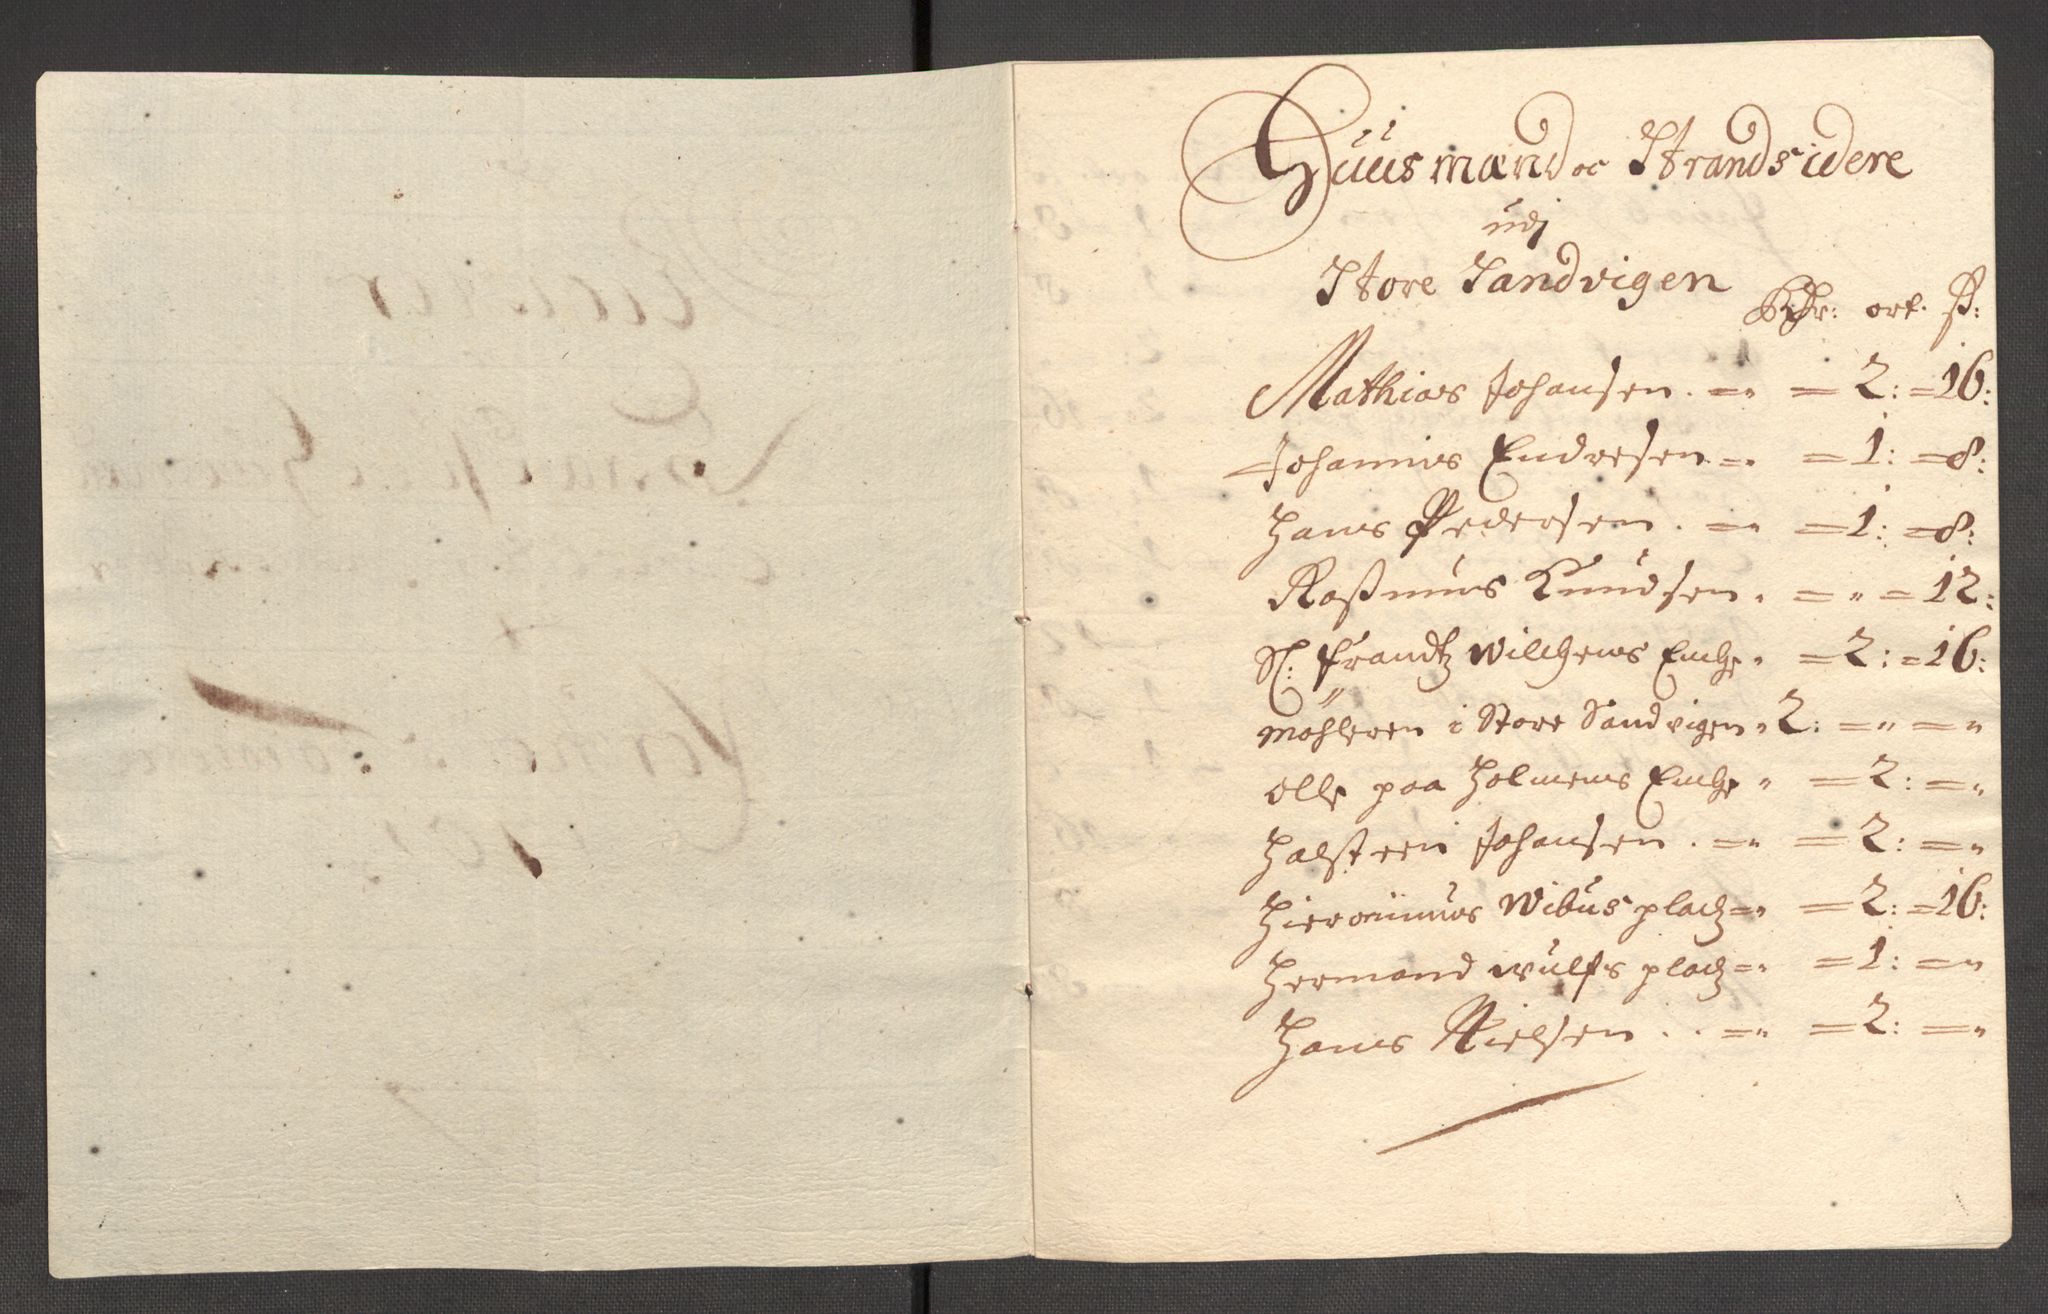 Huusmænd oc Strandsidere
udj
Store Sandvigen
Rdr: ort. ß:
Mathias Johansen. = " = 2: = 16:
Johannis Endresen = " = 1: = 8:
Hans Pedersen. = " = 1: = 8:
Rasmus Knudsen. = " = 12:
Sl: Frandtz Wilchens Encke " = 2: = 16:
Møhleren i Store Sandvigen " 2: = " = "
Olle paa Holmens Encke " = 2: = "
Halsteen Johansen. = " = 2: = "
Hieronimus Wibus pladz = " = 2: = 16:
Hermand Wulfs pladz = " = 1: = "
Hans Nielsen.. = " = 2: = "